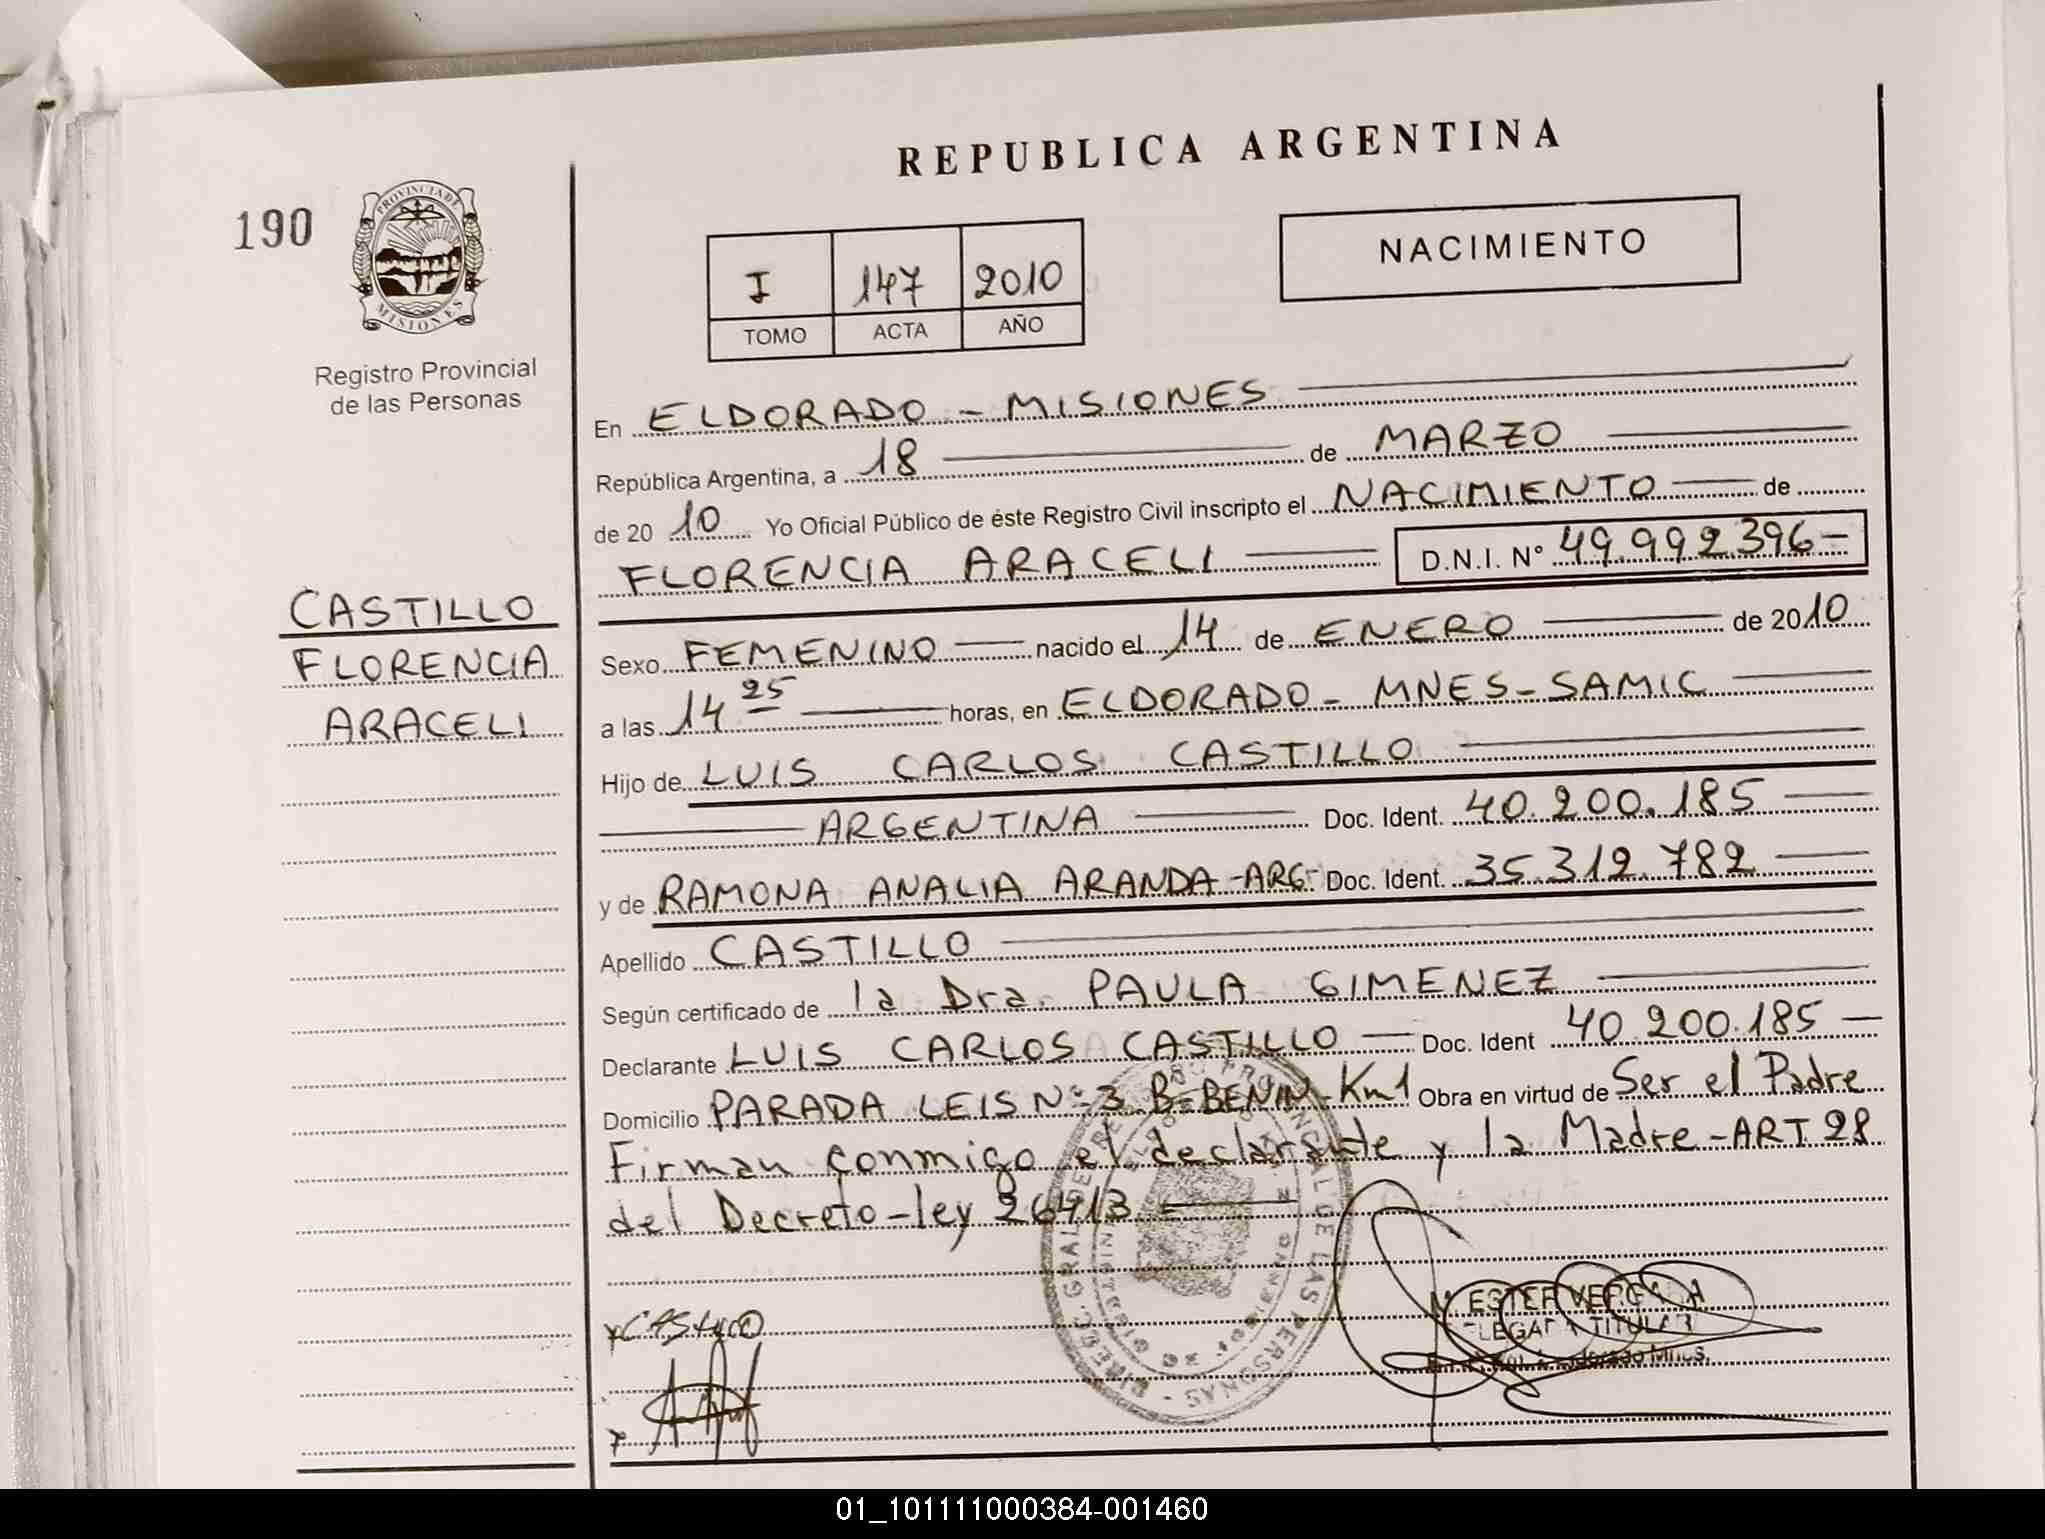 REPUBLICA ARGENTINA
190
PROVINCIA DE
MISIONES
Registro Provincial
de las Personas
I 147 2010
TOMO ACTA AÑO
NACIMIENTO
En ELDORADO - MISIONES
República Argentina, a 18 de MARZO
de 2010 Yo Oficial Público de éste Registro Civil inscripto el NACIMIENTO de
FLORENCIA ARACELI D.N.I. Nº 49.992.396-
CASTILLO
FLORENCIA
ARACELI
Sexo FEMENINO nacido el 14 de ENERO de 2010
a las 14 25 horas, en ELDORADO - MNES - SAMIC
Hijo de LUIS CARLOS CASTILLO
ARGENTINA Doc. Ident. 40.200.185
y de RAMONA ANALIA ARANDA -ARG- Doc. Ident. 35.312.782
Apellido CASTILLO
Según certificado de la Dra. PAULA GIMENEZ
Declarante LUIS CARLOS CASTILLO Doc. Ident 40.200.185
Domicilio PARADA LEIS Nº 3 Bº BENIN - Km1 Obra en virtud de Ser el Padre
Firman conmigo el declarante y la Madre - ART 28
del Decreto-ley 26413
ESTER
TITULAR
01_101111000384-001460